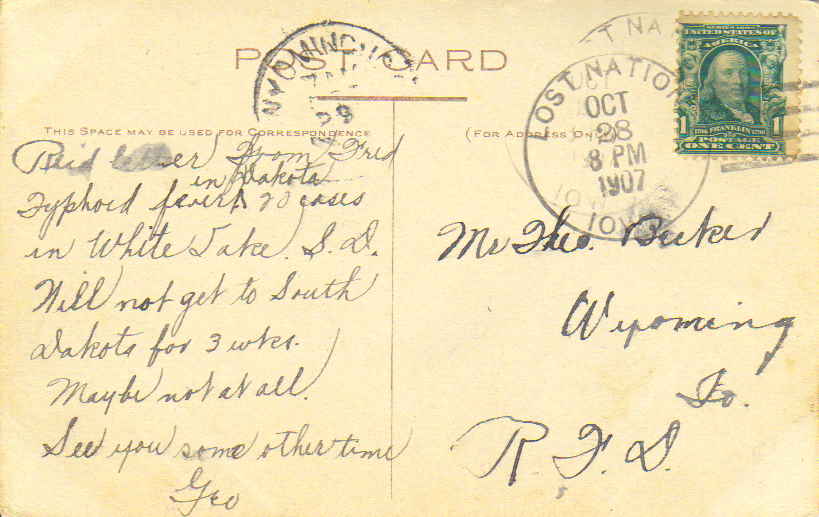 POST CARD
THIS SPACE MAY BE USED FOR CORRESPONDENCE
(FOR ADDRESS ONLY)
WYOMING
LOST NATION
OCT
28
8 PM
1907
IOWA
SERIES 1902
UNITED STATES OF
AMERICA
1 FRANKLIN 1
POSTAGE
ONE CENT
Recd letter From Fred
in Dakota
Typhoid fever 20 cases
in White Lake. S. D.
Will not get to South
Dakota for 3 wks.
Maybe not at all.
See you some other time
Geo
Mr Theo. Becker
Wyoming
Io.
R. F. D.